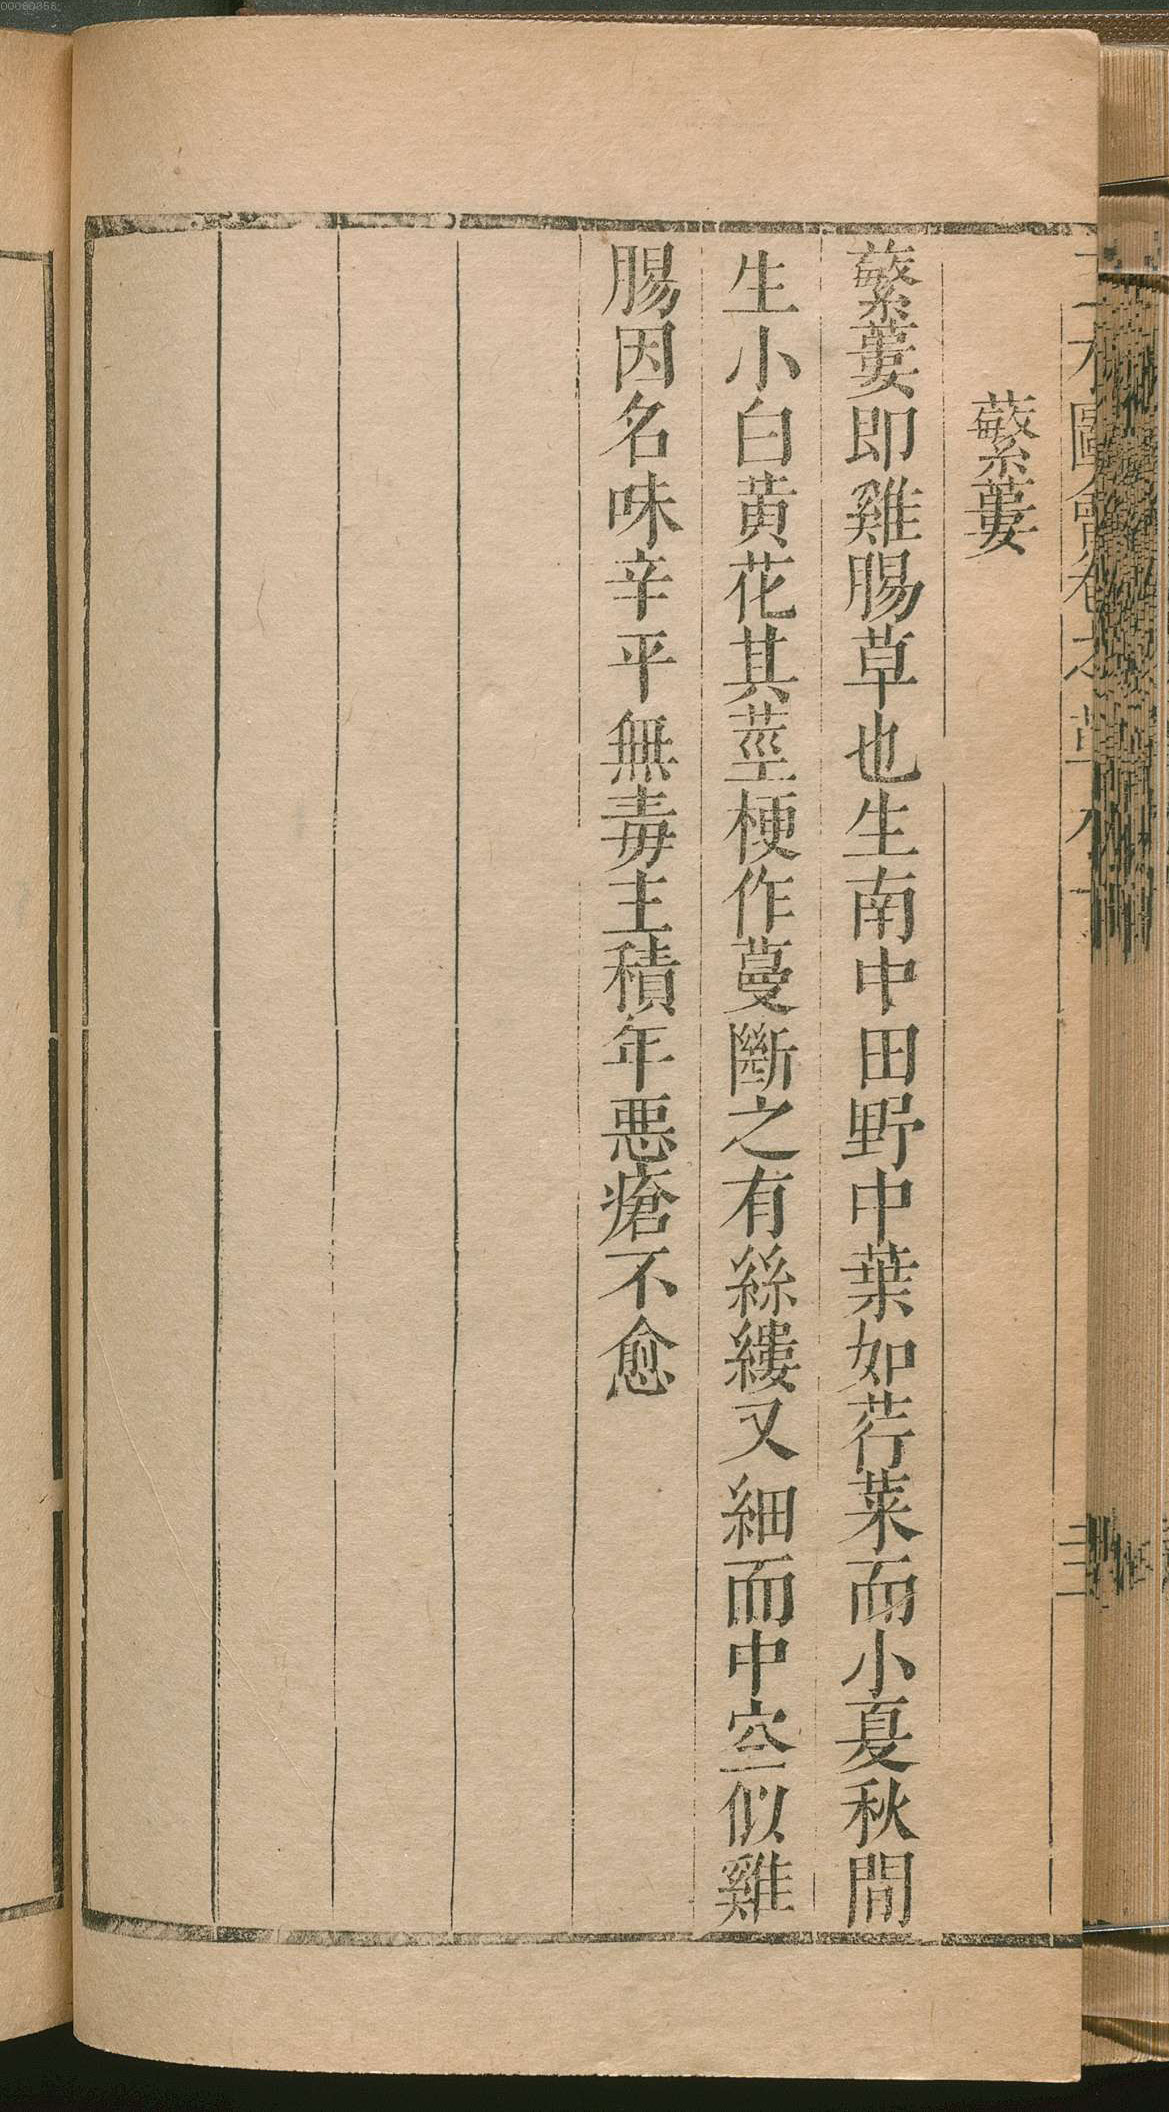 蘩蔞
蘩蔞即雞腸草也生南中田野中葉如荇菜而小夏秋間
生小白黄花其莖梗作蔓斷之有絲縷又細而中空似雞
腸因名味辛平無毒主積年惡瘡不愈
00060858